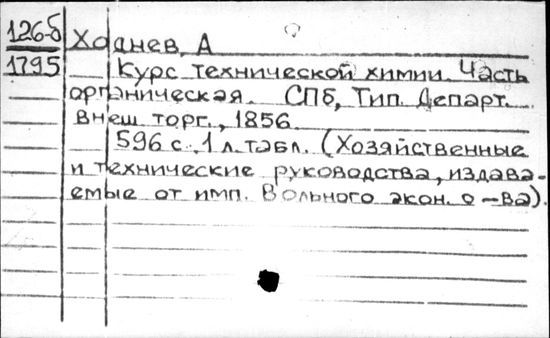 126-б Ходнев, А
1795 Курс технической химии. Часть
органическая. СПб, Тип. Департ.
Внеш. торг., 1856.
596 с., 1 л. табл. (Хозяйственные
и технические руководства, издава-
емые от имп. Вольного экон. о-ва).